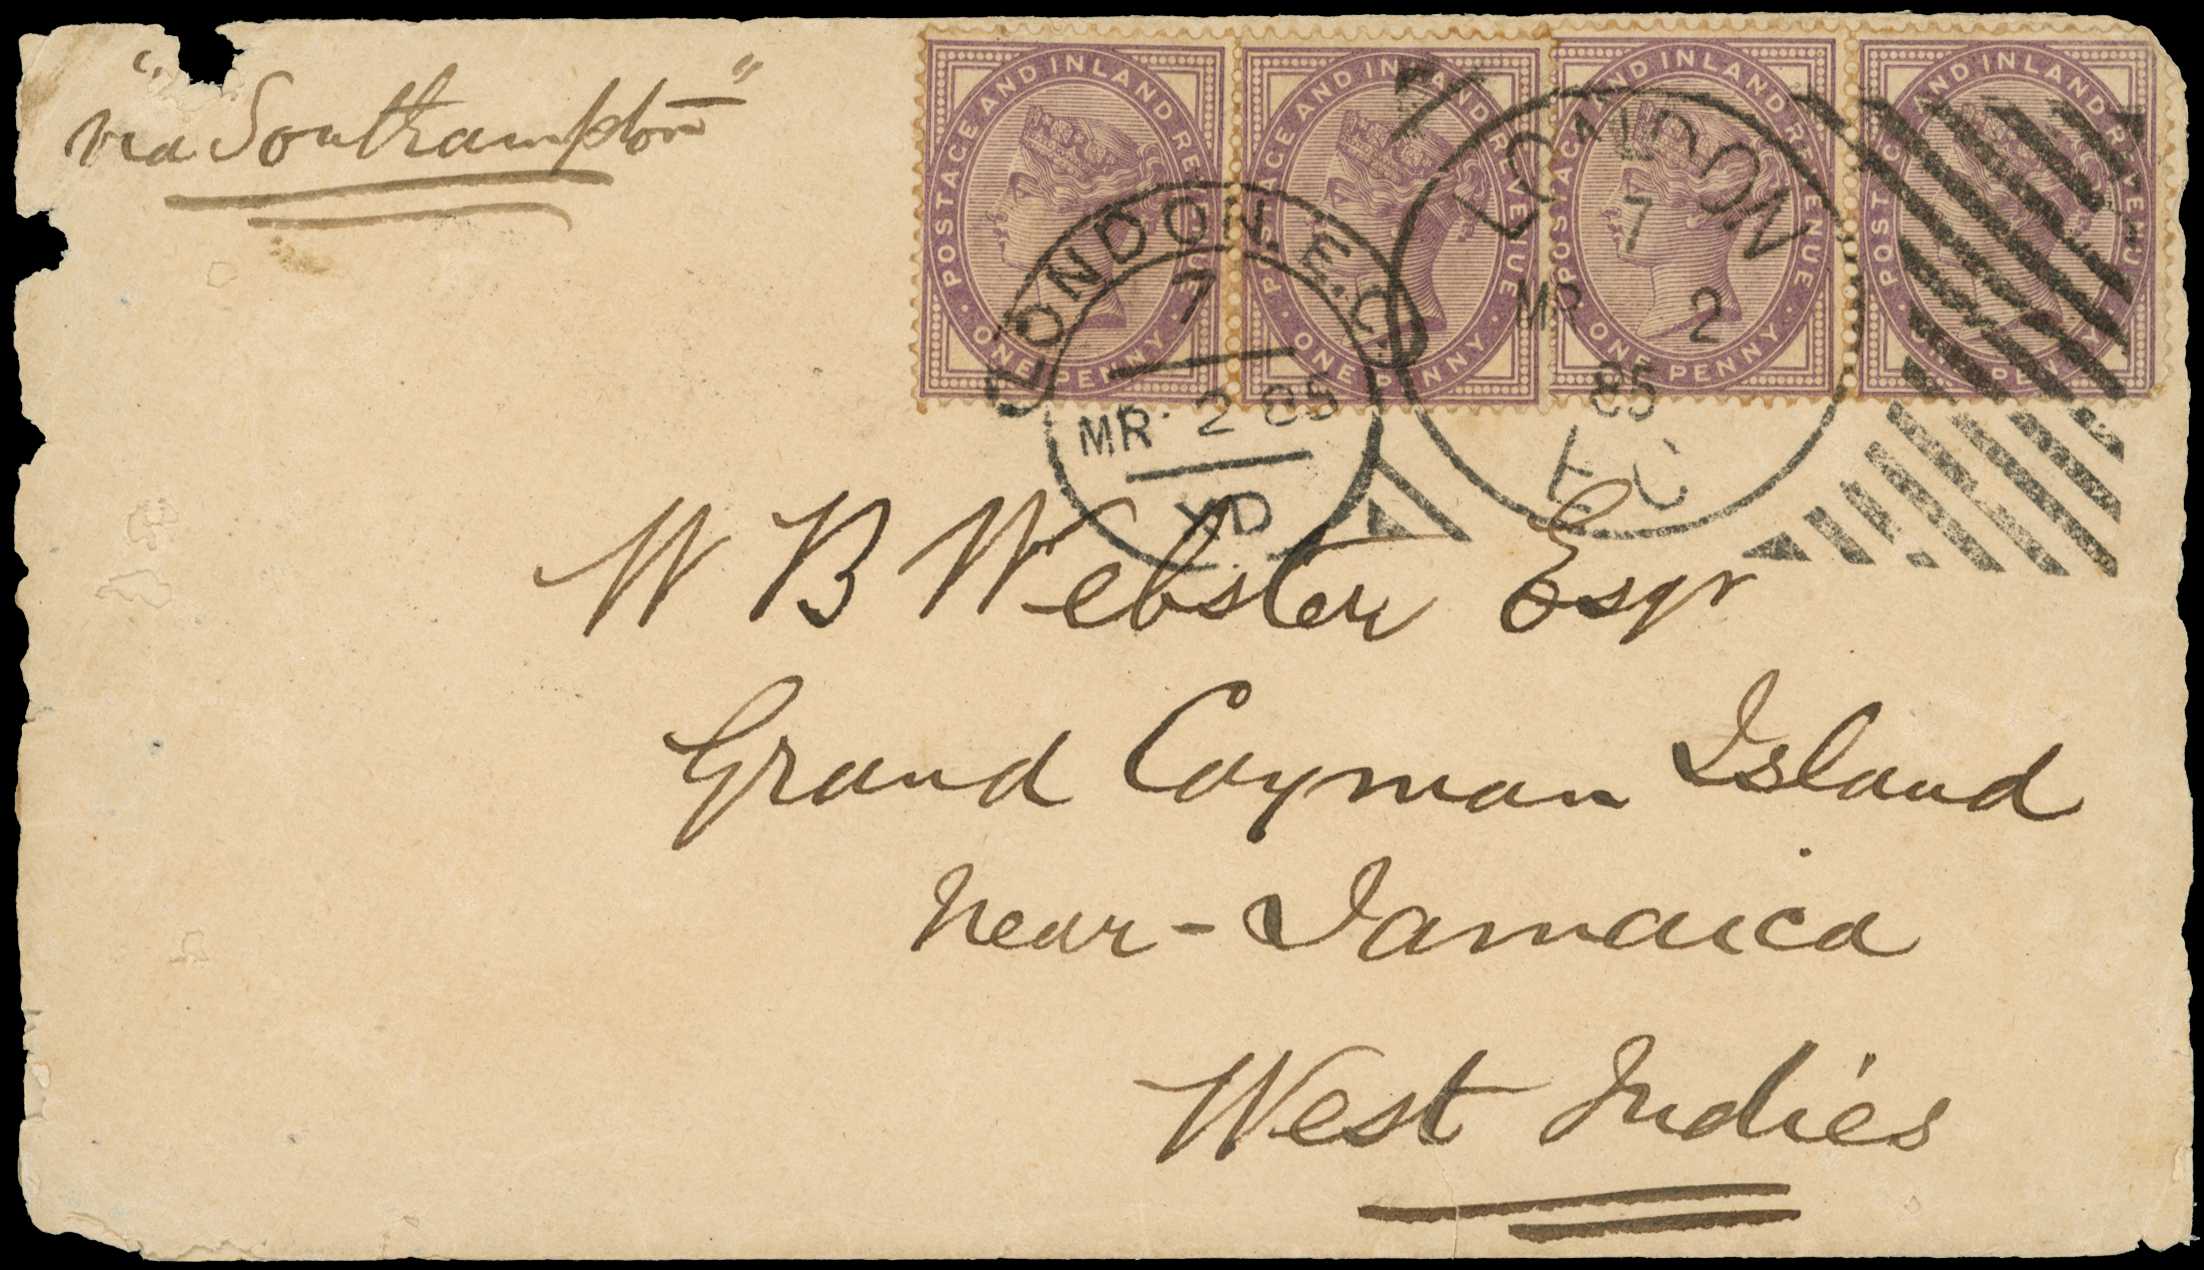 "via Southampton"
POSTAGE AND INLAND RE U
ONE PENNY
POSTAGE AND INLAND REVENUE
ONE PENNY
POSTAGE AND INLAND REVENUE
ONE PENNY
POSTAGE AND INLAND REVENU
PENY
LONDON. E.C.
7
MR 2 85
LONDON
7
MR 2
85
EC
W B Webster Esqr
Grand Cayman Island
Near - Jamaica
West Indies